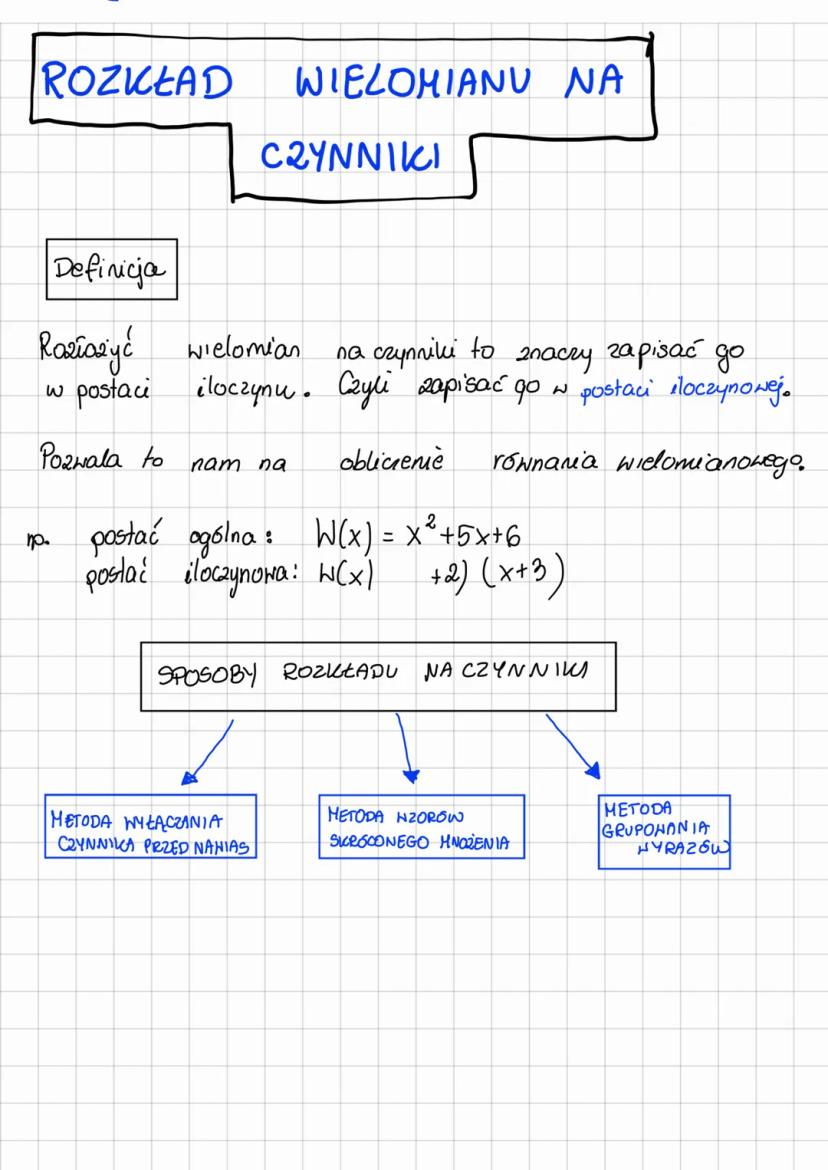 ROZKŁAD WIELOMIANU NA
CZYNNIKI
Definicja
Rozłożyć wielomian na czynniki to znaczy zapisać go
w postaci iloczynu. Czyli zapisać go w postaci iloczynowej.
Pozwala to nam na obliczenie równania wielomianowego.
np. postać ogólna: W(x) = x²+5x+6
postać iloczynowa: W(x) +2) (x+3)
SPOSOBY ROZKŁADU NA CZYNNIKI
METODA WYŁĄCZANIA
CZYNNIKA PRZED NAWIAS
METODA WZORÓW
SKRÓCONEGO MNOŻENIA
METODA
GRUPOWANIA
WYRAZÓW